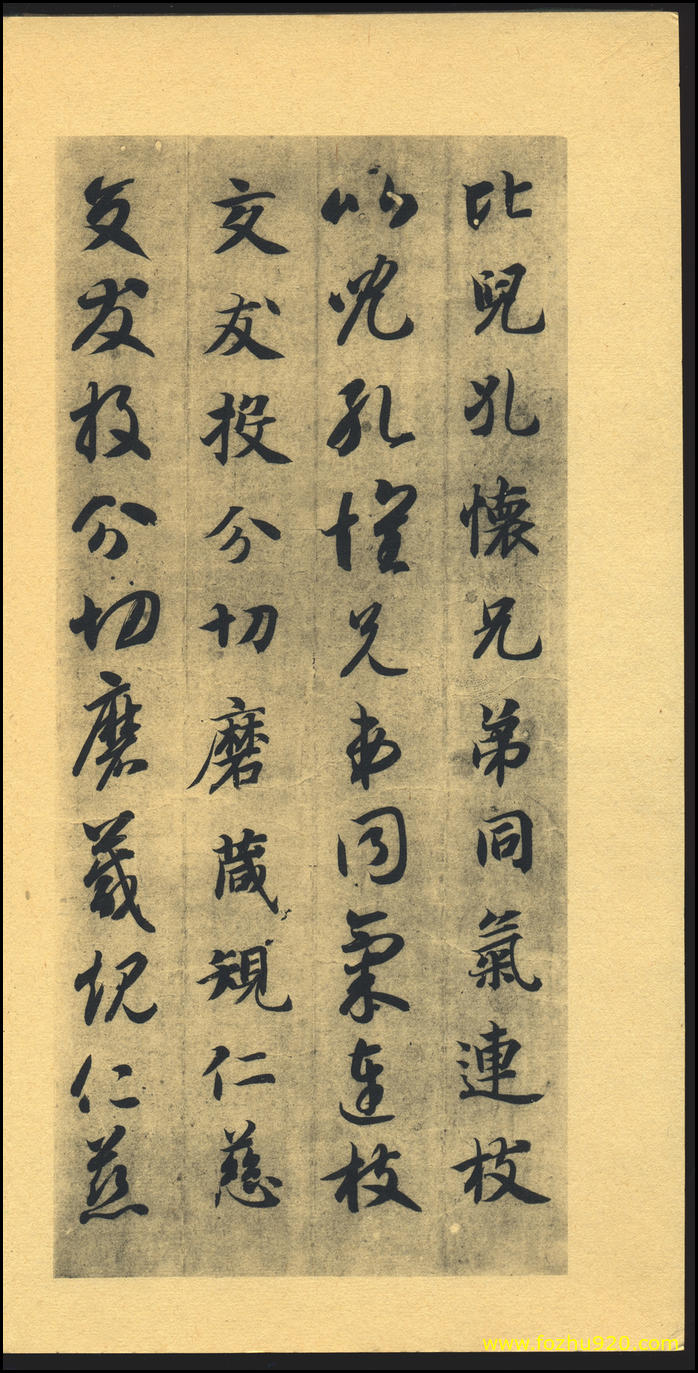 比兒孔懷兄弟同氣連枝
比兒孔懷兄弟同氣連枝
交友投分切磨箴規仁慈
交友投分切磨箴規仁慈
www.fozhu920.com